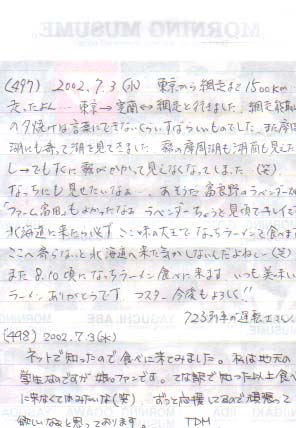 MORNING MUSUME。
(497) 2002.7.3(水) 東京から網走まで1500km
走ったよん… 東京→室蘭↔網走と行きました。網走能取
の夕焼けは言葉にできないくらいすばらしいものでした。また摩周
湖にも寄って湖を見てきました。霧の摩周湖も湖面も見えた
しーでもすぐに霧がかかって見えなくなってしまった(笑)
なっちにも見せたいなぁ… あそうだ富良野のラベンダー
「ファーム富田」もよかったなぁ ラベンダーちょうど見頃でキレイで
北海道に来たら必ずここ味の大王でなっちラーメンで食べます
ここへ寄らないと北海道へ来た気がしないんだよねー(笑)
また8.10頃になっちラーメン食べに来ます。いつも美味しい
ラーメンありがとうです。マスター今後もよろしく!!
723列車の運転士
(498) 2002.7.3(水)
ネットで知ったので食べに来てみました。私は地元の
学生なのですが娘。ファンです。てな訳で知った以上食べ
に来なくてはみたいな(笑) ずっと応援してるので頑張って
欲しいなぁと思っております。 TDM
YAGUCHI
OGAWA
NIIGAKI